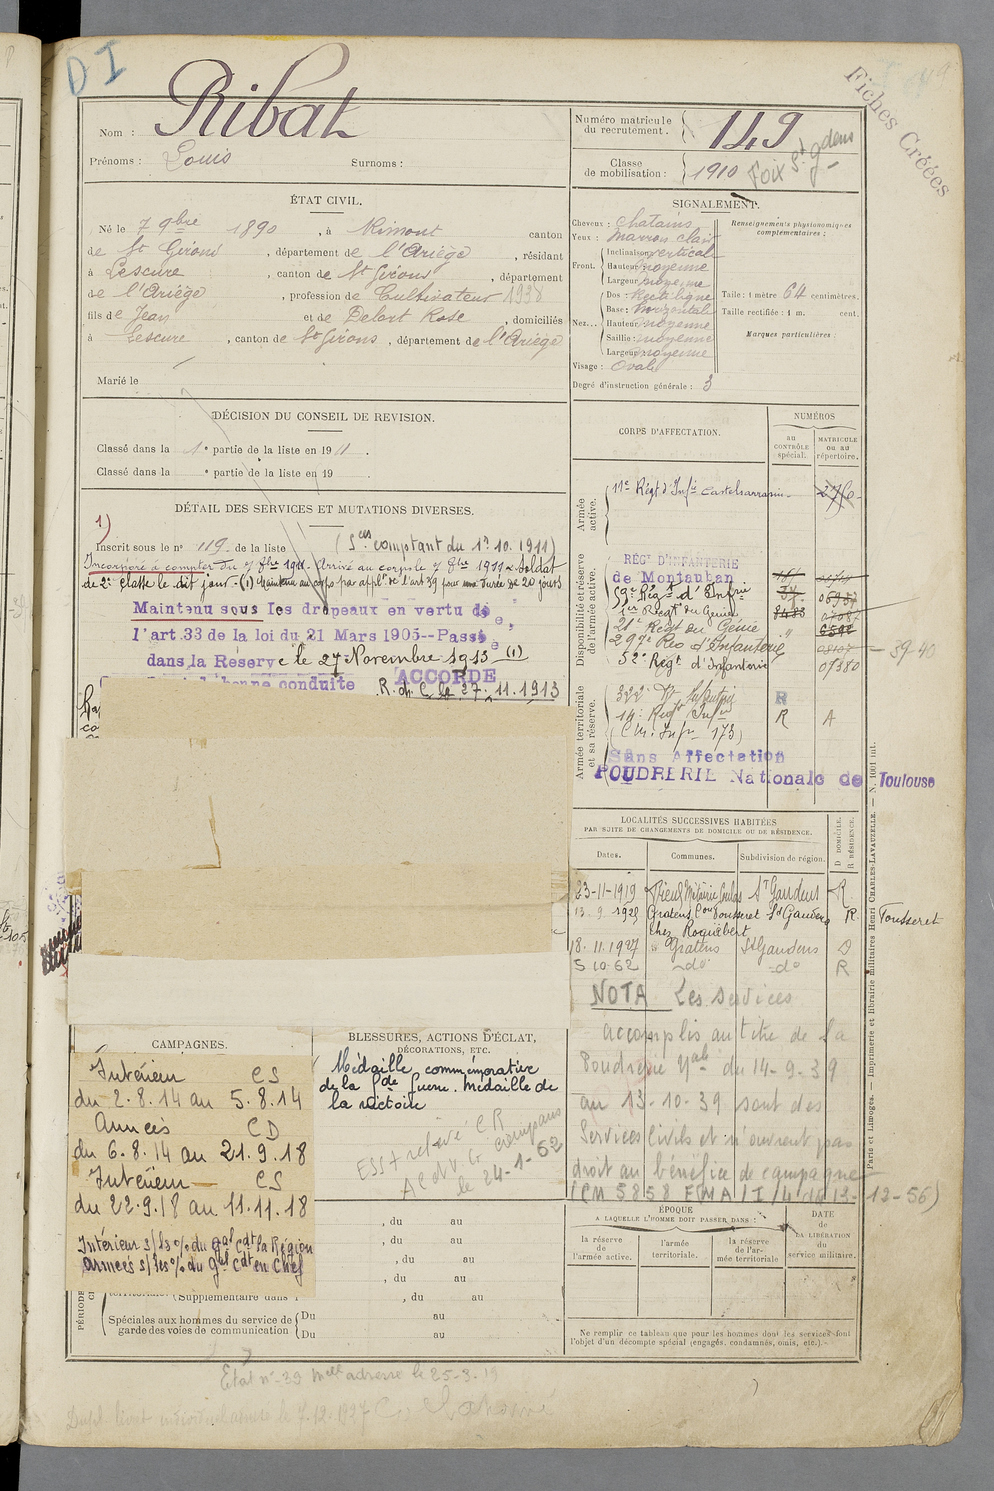 DI
Fiches Créées
Nom : Ribat
Prénoms : Louis Surnoms :
Numéro matricule du recrutement. 149
Classe de mobilisation : 1910 Foix St Gdens
ÉTAT CIVIL.
Né le 7 9bre 1890, à Rimont canton
de St Girons, département de l'Ariège, résidant
à Lescure, canton de St Girons, département
de l'Ariège, profession de Cultivateur 1938
fils de Jean et de Delort Rose, domiciliés
à Lescure, canton de St Girons, département de l'Ariège
Marié le
SIGNALEMENT.
Cheveux : chatains
Yeux : marron clair
Front. Inclinaison verticale
Hauteur moyenne
Largeur moyenne
Nez... Dos : Rectiligne
Base : horizontale
Hauteur moyenne
Saillie : moyenne
Largeur moyenne
Visage : Ovale
Degré d'instruction générale : 3
Renseignements physionomiques complémentaires :
Taille : 1 mètre 64 centimètres.
Taille rectifiée : 1 m. cent.
Marques particulières :
DÉCISION DU CONSEIL DE REVISION.
Classé dans la 1e partie de la liste en 1911.
Classé dans la e partie de la liste en 19 .
DÉTAIL DES SERVICES ET MUTATIONS DIVERSES.
1)
Inscrit sous le n° 119 de la liste (Sces comptant du 1er.10.1911)
Incorporé à compter du 9 8bre 1911. Arrivé au corps le 9 8bre 1911 & Soldat
de 2e classe le dit jour - (1) Maintenu au corps par appl. de l'art 39 pour une durée de 20 jours
Maintenu sous les drapeaux en vertu de
l'art.33 de la loi du 21 Mars 1905--Passé
dans la Reserve le 27 Novembre 1913 (1)
bonne conduite ACCORDE
R. du C. le 27.11.1913
CORPS D'AFFECTATION.
NUMÉROS
au CONTRÔLE spécial.
MATRICULE ou au répertoire.
Armée active.
11e Régt d'Infie Castelsarrasin
Disponibilité et réserve de l'armée active.
RÉGt D'INFANTERIE
de Montauban
59e Régt d'Infrie
1er Régt du Génie
21e Régt du Génie
297e Reg d'Infanterie
52e Régt d'Infanterie 07380
39-40
Armée territoriale et sa réserve.
322e Rt Infanterie R
14e Régt Infie R A
(CM. Infie 173)
Sans Affectation
POUDRERIE Nationale de Toulouse
LOCALITÉS SUCCESSIVES HABITÉES
PAR SUITE DE CHANGEMENTS DE DOMICILE OU DE RÉSIDENCE.
Dates. Communes. Subdivision de région. D DOMICILE. R RÉSIDENCE.
23-11-1919 St Gaudens R
13.9.1925 Gratens Con Fousseret St Gaudens R. Fousseret
chez Roquebert
18.11.1927 " Gratens St Gaudens D
5 10-62 -do- -do- R
NOTA Les services
accomplis au titre de la
Poudrerie Nale du 14-9-39
au 13-10-39 sont des
Services civils et n'ouvrent pas
droit au bénéfice de campagne
(CM 5858 EMA/I/4 du 13-12-56)
CAMPAGNES.
Intérieur CS
du 2.8.14 au 5.8.14
Armées CD
du 6.8.14 au 21.9.18
Intérieur CS
du 22.9.18 au 11.11.18
Intérieur s/ les % du Gal Cdt la Région
armées s/ les % du Gal Cdt en Chef
BLESSURES, ACTIONS D'ÉCLAT,
DÉCORATIONS, ETC.
Médaille commémorative
de la Gde Guerre. Médaille de
la victoire
ESS relevé CR
le 24-1-62
, du au
, du au
, du au
, du au
Supplémentaire dans , du au
Spéciales aux hommes du service de garde des voies de communication
Du au
Du au
ÉPOQUE
A LAQUELLE L'HOMME DOIT PASSER DANS :
la réserve de l'armée active.
l'armée territoriale.
la réserve de l'armée territoriale
DATE de LA LIBÉRATION du service militaire.
Ne remplir ce tableau que pour les hommes dont les services font
l'objet d'un décompte spécial (engagés, condamnés, omis, etc.).
Paris et Limoges. — Imprimerie et librairie militaires Henri CHARLES-LAVAUZELLE. — N. 1001 int.
Etat n° 39 Mlle adresse le 25-3-19
Dupl. livret individuel le 7.12.1927